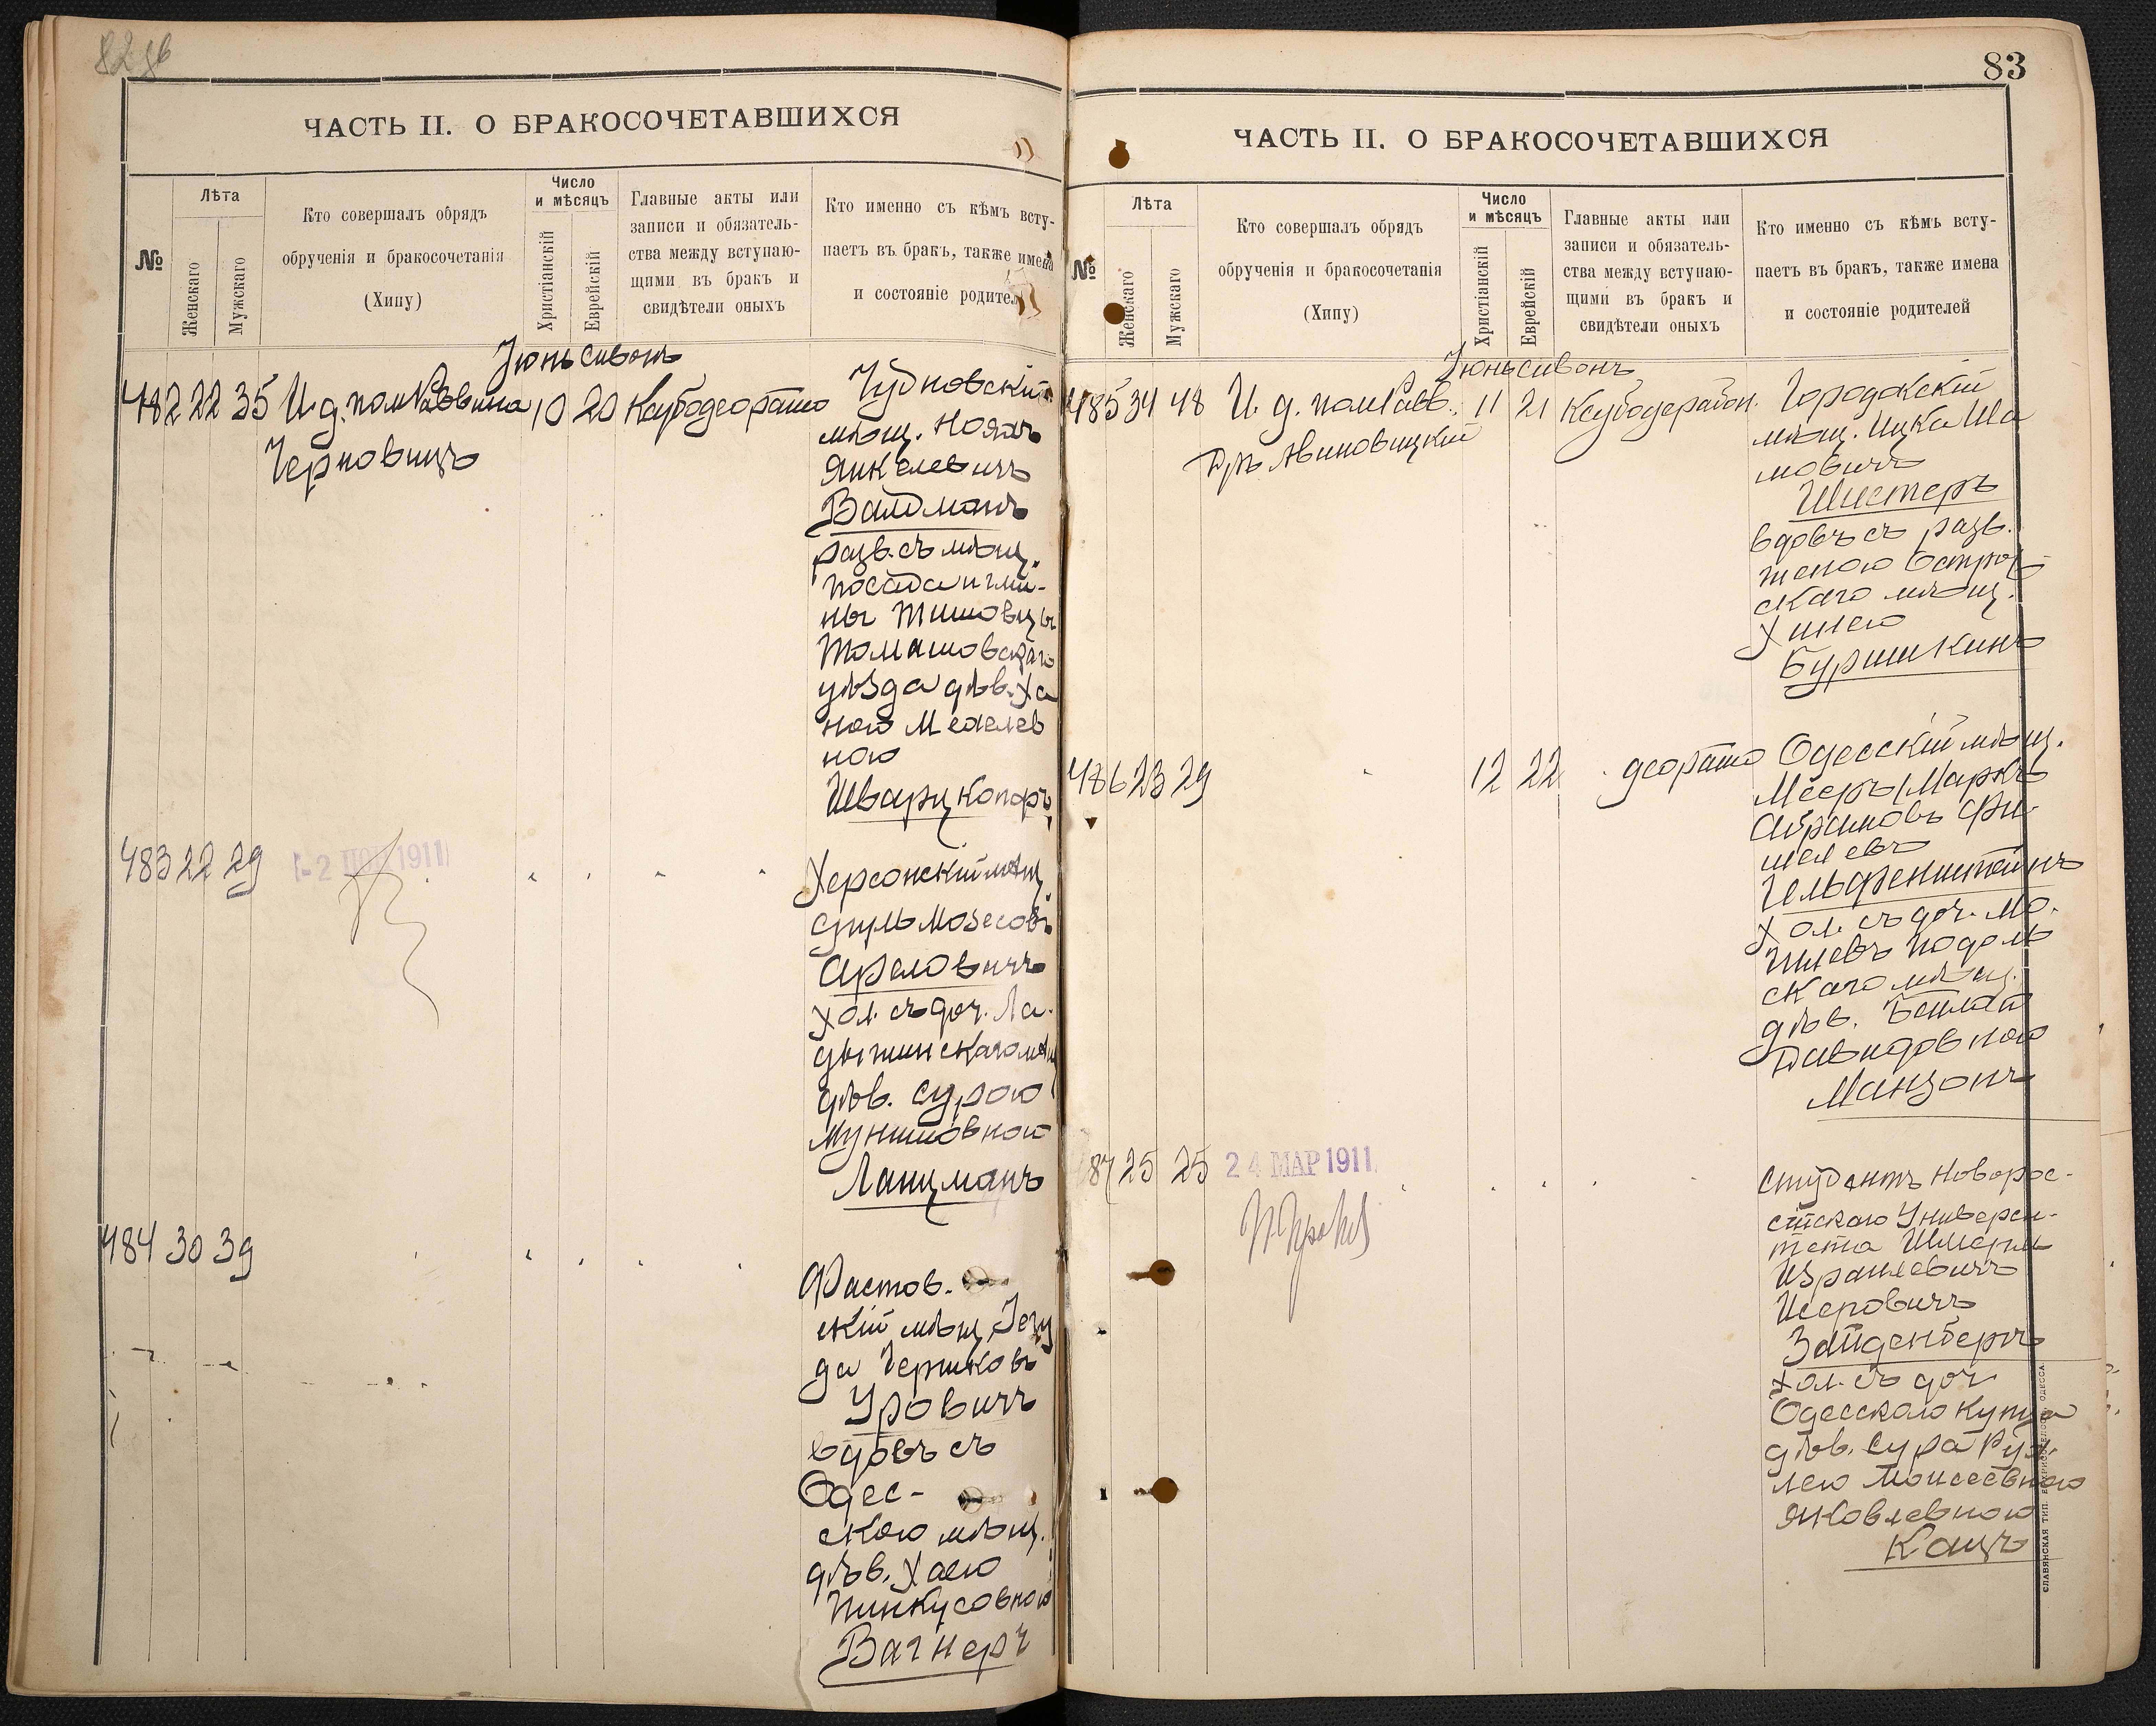 82 об
ЧАСТЬ II. О БРАКОСОЧЕТАВШИХСЯ
№
Лѣта
Женскаго
Мужскаго
Кто совершалъ обрядъ
обрученія и бракосочетанія
(Хипу)
Число
и мѣсяцъ
Христіанскій
Еврейскій
Главные акты или
записи и обязатель-
ства между вступаю-
щими въ бракъ и
свидѣтели оныхъ
Кто именно съ кѣмъ всту-
паетъ въ бракъ, также имена
и состояніе родител
Іюнь Сивонъ
482 22 35 И. д. пом. Раввина 10 20
Черновицъ
Чудновскій
мѣщ. Нояхъ
Янкелевичъ
Валдманъ
разв. съ мѣщ.
посада и гми-
ны Тишовцы
Томашовскаго
уѣзда дѣв. Ха
ною Мехелев
ною
483 22 29
2 1911
Херсонскій мѣщ.
Сруль Мозесовъ
Хол. съ доч. Ла-
дыжинскаго мѣщ
дѣв. Сурою
Ланцманъ
484 30 39
Фастов-
скій мѣщ. Іегу
да Берковъ
Уровичъ
вдовъ съ
Одес-
скою мѣщ.
дѣв. Хаею
Пинкусовною
Вагнеръ
83
ЧАСТЬ II. О БРАКОСОЧЕТАВШИХСЯ
№
Лѣта
Женскаго
Мужскаго
Кто совершалъ обрядъ
обрученія и бракосочетанія
(Хипу)
Число
и мѣсяцъ
Христіанскій
Еврейскій
Главные акты или
записи и обязатель-
ства между вступаю-
щими въ бракъ и
свидѣтели оныхъ
Кто именно съ кѣмъ всту-
паетъ въ бракъ, также имена
и состояніе родителей
Іюнь Сивонъ
485 34 48 И. д. пом. Равв. 11 21
Д-ръ Авиновицкій
Городокскій
мѣщ. Ицка Ша
мовичъ
Шистеръ
вдовъ съ разв.
женою Острож
скаго мѣщ.
Хинею
Буршикинъ
486 23 29 12 22
Одесскій мѣщ.
Мееръ (Маркъ
Абрамовъ Фи-
шелевъ
Гельфенштейнъ
Хол. съ доч. Мо-
гилевъ Подоль
скаго мѣщ.
дѣв. Бейлой
Давидовною
Манзонъ
87 25 25
24 МАР 1911
Студентъ Новорос-
сійскаго Универси-
тета Шмерль
Израилевичъ
Исеровичъ
Зайденбергъ
хол. съ доч.
Одесскаго купца
дѣв. Сура Рух-
лею Моисеевною
Яковлевною
Кацъ
СЛАВЯНСКАЯ ТИП. ОДЕССА